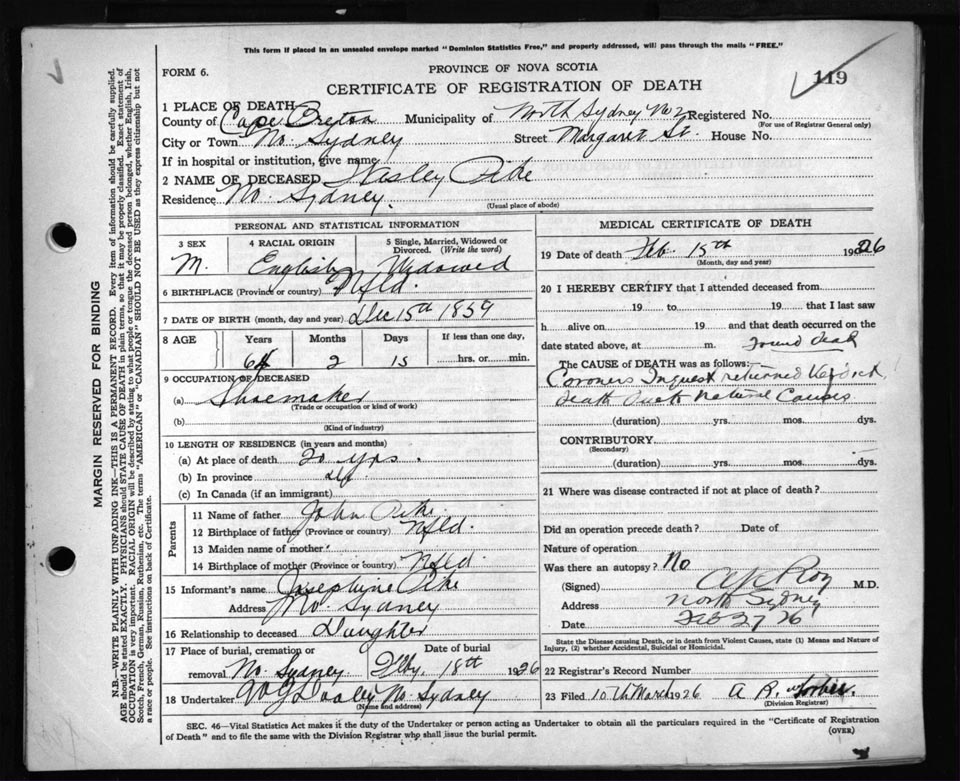 This form if placed in an unsealed envelope marked "Dominion Statistics Free," and properly addressed, will pass through the mails "FREE."
FORM 6.
PROVINCE OF NOVA SCOTIA
119
CERTIFICATE OF REGISTRATION OF DEATH
1 PLACE OF DEATH
County of Cape Breton Municipality of North Sydney No 2 Registered No.
(For use of Registrar General only)
City or Town No. Sydney Street Margaret St. House No.
If in hospital or institution, give name
2 NAME OF DECEASED Wesley Pike
Residence No. Sydney.
(Usual place of abode)
PERSONAL AND STATISTICAL INFORMATION
3 SEX 4 RACIAL ORIGIN 5 Single, Married, Widowed or Divorced. (Write the word)
M. English Widowed
6 BIRTHPLACE (Province or country) Nfld.
7 DATE OF BIRTH (month, day and year) Dec 15th 1859
8 AGE Years Months Days If less than one day,
2 15 hrs. or min.
9 OCCUPATION OF DECEASED
(a) Shoemaker
(Trade or occupation or kind of work)
(b)
(Kind of industry)
10 LENGTH OF RESIDENCE (in years and months)
(a) At place of death 20 yrs.
(b) In province
(c) In Canada (if an immigrant)
Parents
11 Name of father John Pike
12 Birthplace of father (Province or country) Nfld.
13 Maiden name of mother
14 Birthplace of mother (Province or country) Nfld.
15 Informant's name Josephine Pike
Address No. Sydney
16 Relationship to deceased Daughter
17 Place of burial, cremation or removal Date of burial
No. Sydney Feby. 18th 1926
18 Undertaker Dooley No. Sydney
(Name and address)
MEDICAL CERTIFICATE OF DEATH
19 Date of death Feb. 15th 1926
(Month, day and year)
20 I HEREBY CERTIFY that I attended deceased from
19 to 19 that I last saw
h alive on 19 and that death occurred on
date stated above, at m. found dead
The CAUSE of DEATH was as follows:
Coroners Inquest returned Verdict
death due to Natural Causes
(duration) yrs. mos. dys.
CONTRIBUTORY
(Secondary)
(duration) yrs. mos. dys.
21 Where was disease contracted if not at place of death?
Did an operation precede death? Date of
Nature of operation
Was there an autopsy? No
(Signed) Roy M.D.
Address North Sydney
Date Feb 27 26
State the Disease causing Death, or in death from Violent Causes, state (1) Means and Nature of Injury, (2) whether Accidental, Suicidal or Homicidal.
22 Registrar's Record Number
23 Filed 10th March 1926 A R. Forbes.
(Division Registrar)
SEC. 46—Vital Statistics Act makes it the duty of the Undertaker or person acting as Undertaker to obtain all the particulars required in the "Certificate of Registration
of Death" and to file the same with the Division Registrar who shall issue the burial permit.
(OVER)
MARGIN RESERVED FOR BINDING
N.B.—WRITE PLAINLY WITH UNFADING INK—THIS IS A PERMANENT RECORD. Every item of information should be carefully supplied.
AGE should be stated EXACTLY. PHYSICIANS should STATE CAUSE OF DEATH in plain terms, so that it may be properly classified. Exact statement of
OCCUPATION is very important. RACIAL ORIGIN will be described by stating to what people or tongue the deceased person belonged, whether English, Irish,
Scotch, French, German, Russian, Ruthenian, etc. The terms "AMERICAN" or "CANADIAN" SHOULD NOT BE USED as they express citizenship but not
a race or people. See instructions on back of Certificate.